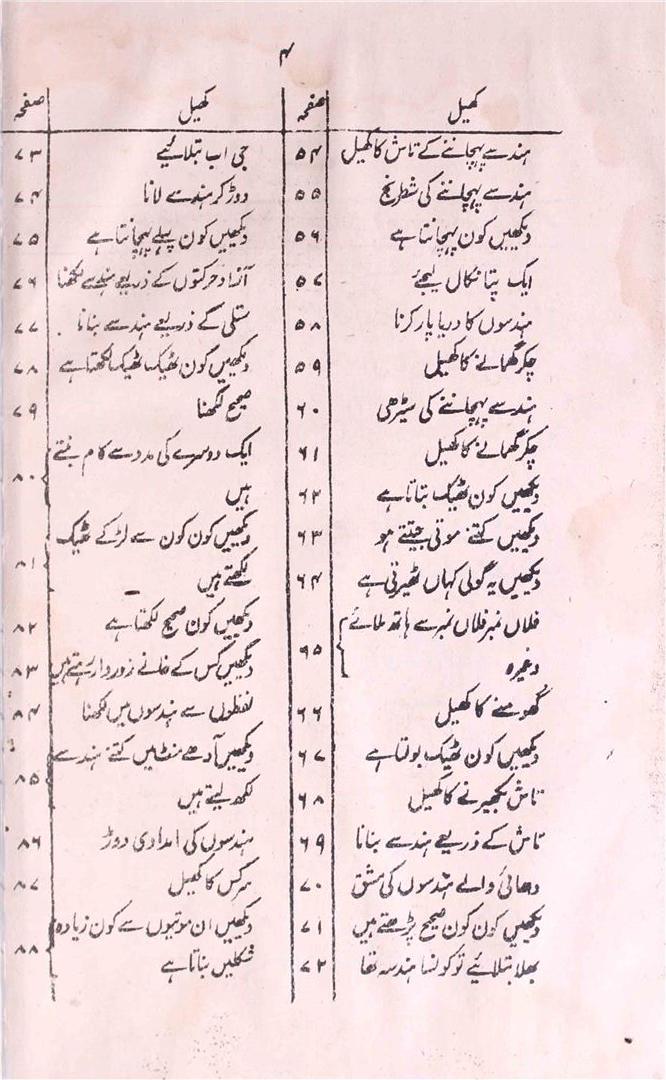 ۴
کھیل صفحہ
ہندسے پہچاننے کے تاش کا کھیل ۵۴
ہندسے پہچاننے کی شطرنج ۵۵
دیکھیں کون پہچانتا ہے ۵۶
ایک پتا نکال لیجئے ۵۷
ہندسوں کا دریا پار کرنا ۵۸
چکر گھمانے کا کھیل ۵۹
ہندسے پہچاننے کی سیڑھی ۶۰
چکر گھمانے کا کھیل ۶۱
دیکھیں کون ٹھیک بتاتا ہے ۶۲
دیکھیں کتنے موتی جیتتے ہو ۶۳
دیکھیں یہ گولی کہاں ٹھیرتی ہے ۶۴
فلاں نمبر فلاں نمبر سے ہاتھ ملائے
وغیرہ ۶۵
گھومنے کا کھیل ۶۶
دیکھیں کون ٹھیک بولتا ہے ۶۷
تاش بکھیرنے کا کھیل ۶۸
تاش کے ذریعے ہندسے بنانا ۶۹
دھائی والے ہندسوں کی مشق ۷۰
دیکھیں کون کون صحیح پڑھتے ہیں ۷۱
بھلا بتلائیے تو کونسا ہندسہ تھا ۷۲
کھیل صفحہ
جی اب بتلائیے ۷۳
دوڑ کر ہندسے لانا ۷۴
دیکھیں کون پہلے پہچانتا ہے ۷۵
آزاد حرکتوں کے ذریعے ہندسے لکھنا ۷۶
ستلی کے ذریعے ہندسے بنانا ۷۷
دیکھیں کون ٹھیک ٹھیک لکھتا ہے ۷۸
صحیح لکھنا ۷۹
ایک دوسرے کی مدد سے کام بنتے
ہیں ۸۰
دیکھیں کون کون سے لڑکے ٹھیک
لکھتے ہیں ۸۱
دیکھیں کون صحیح لکھتا ہے ۸۲
دیکھیں کس کے خانے زوردار رہتے ہیں ۸۳
لفظوں سے ہندسوں میں لکھنا ۸۴
دیکھیں آدھے منٹ میں کتنے ہندسے
لکھ لیتے ہیں ۸۵
ہندسوں کی امدادی دوڑ ۸۶
سرکس کا کھیل ۸۷
دیکھیں ان موتیوں سے کون زیادہ
شکلیں بناتا ہے ۸۸